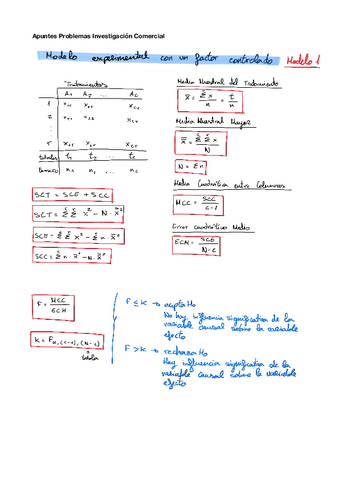 Apuntes Problemas Investigación Comercial
Modelo experimental con un factor controlado Modelo 1
Tratamientos
A₁ A₂ ... A_c
1 x₁₁ x₂₁ x_c₁
2 x₁₂ x₂₂ ...
r x₁r x₂r x_cr
totales t₁ t₂ ... t_c
tamaño n₁ n₂ ... n_c
SCT = SCE + SCC
SCT = ΣΣ x² - N · x̿²
SCE = ΣΣ x² - Σ n x̄²
SCC = Σ n · x̄² - N x̿²
Media Muestral del Tratamiento
x̄ = Σx / n = t / n
Media Muestral Mayor
x̿ = ΣΣx / N
N = Σn
Media Cuadrática entre Columnas
MCC = SCC / c-1
Error Cuadrático Medio
ECM = SCE / N-c
F = MCC / ECM
K = Fα, (c-1), (N-c)
tabla
F ≤ K → acepta H₀
No hay influencia significativa de la
variable causal sobre la variable
efecto
F > K → rechaza H₀
Hay influencia significativa de la
variable causal sobre la variable
efecto